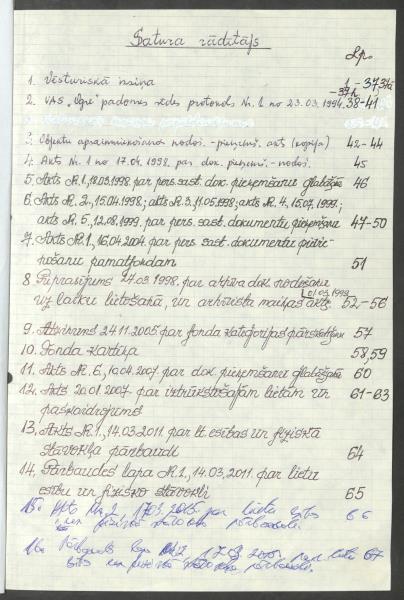 Satura rādītājs
Lp.
1. Vēsturiskā izziņa 1 - 37
2. VAS „Ogre" padomes sēdes protokols Nr. 1 no 23.03.1994. 38-41
3. Objektu apsaimniekošanas nodoš. - pieņemš. akt (kopija) 42-44
4. Akts Nr. 1 no 17.04.1998. par dok. pieņemš. - nodoš. 45
5. Akts Nr. 1, 18.03.1998. par pers. sast. dok. pieņemšanu glabāšanā 46
6. Akts Nr. 2., 15.04.1998; akts Nr. 3, 11.05.1998; akts Nr. 4, 15.07.1999;
akts Nr. 5., 12.08.1999. par pers. sast. dokumentu pieņemšanu 47-50
7. Akts Nr. 1., 16.04.2004. par pers. sast. dokumentu pievie-
nošanu pamatfondam 51
8. Pieprasījums 27.03.1998. par arhīva dok. nodošanu
uz laiku lietošanā, un arhīvista maiņas akts 01.03.1999. 52-56
9. Atzinums 24.11.2005 par fonda kategorijas pārskatīšanu 57
10. Fonda kartiņa 58,59
11. Akts Nr. 6., 10.04.2007. par dok. pieņemšanu glabāšanā 60
12. Akts 20.01.2007. par iztrūkstošajām lietām un 61-63
paskaidrojums
13. Akts Nr. 1., 14.03.2011. par lt. esības un fiziskā
stāvokļa pārbaudi 64
14. Pārbaudes lapa Nr. 1., 14.03.2011. par lietu
esību un fizisko stāvokli 65
15. Akts Nr. 2 17.03.2015. par lietu esības 66
un fiziskā stāvokļa pārbaudi.
16. Pārbaudes lapa Nr. 2, 17.03.2015. par lietu 67
esību un fizisko stāvokļa pārbaudi.